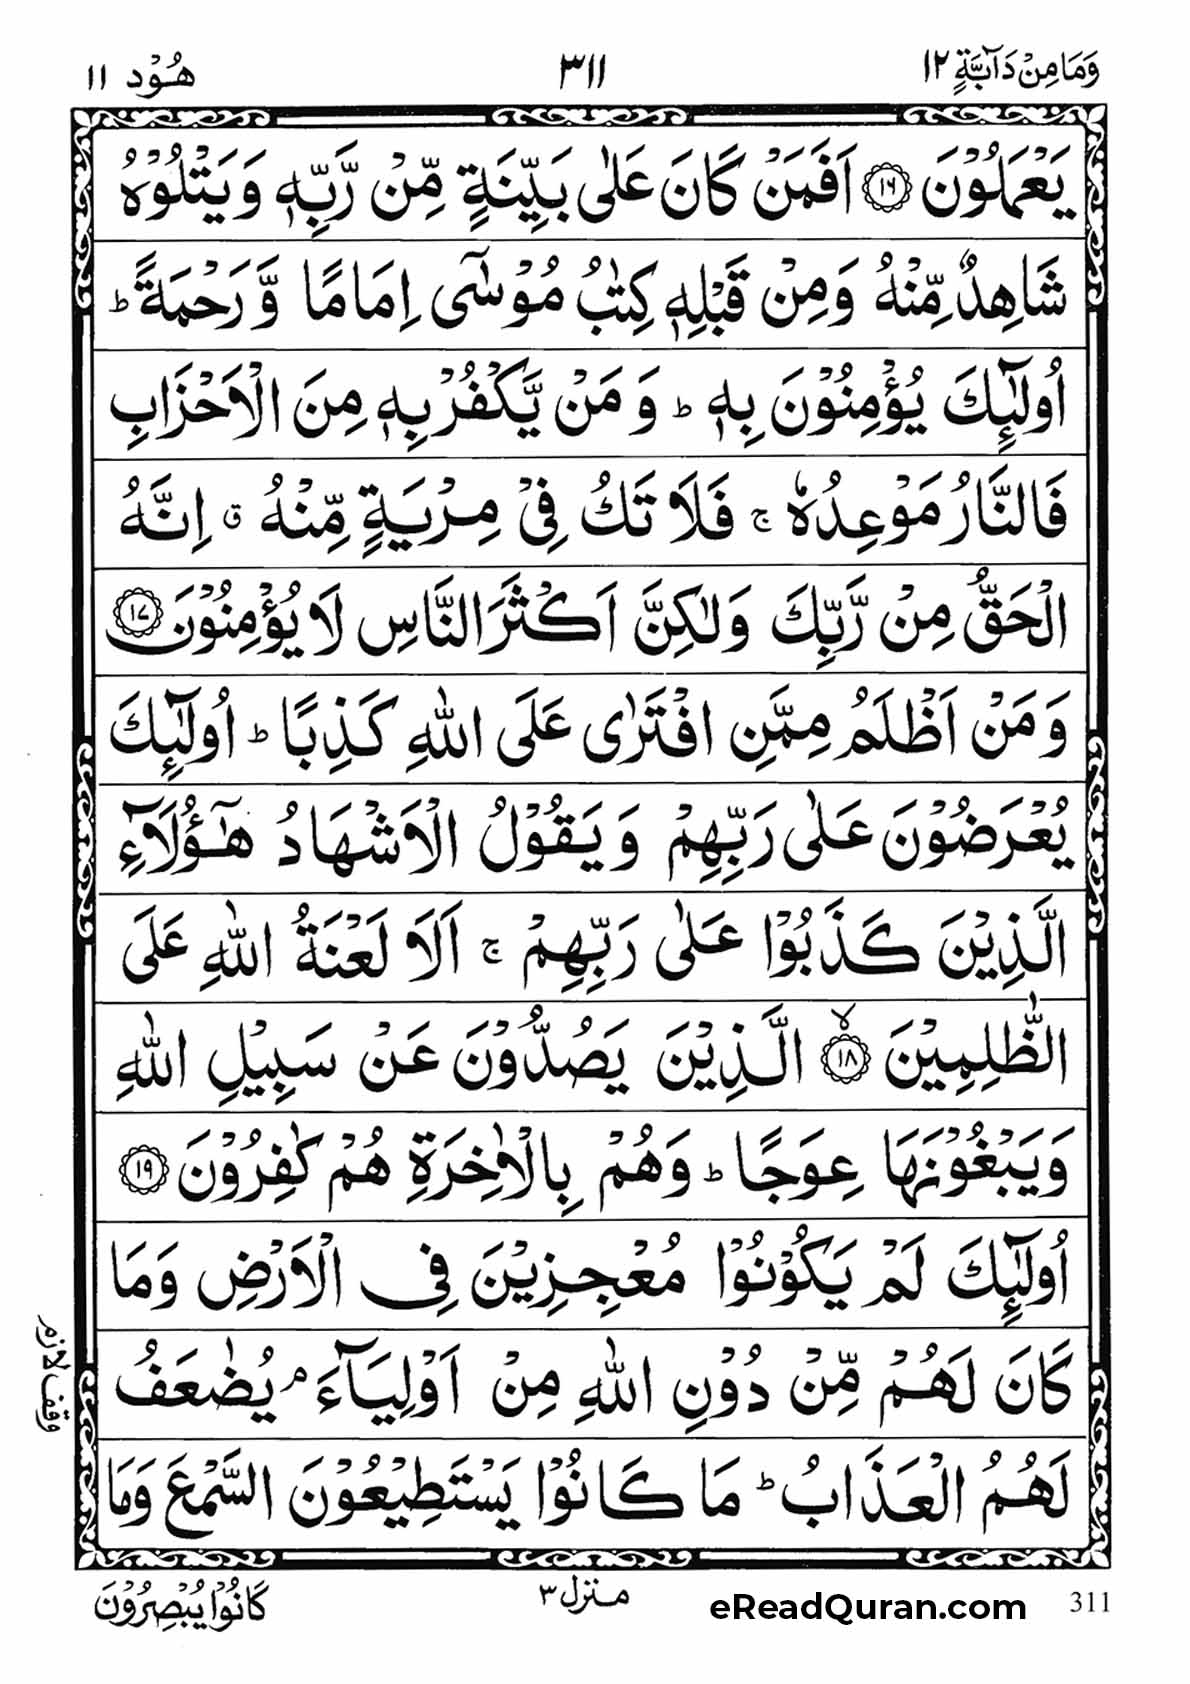 وَمَا مِنْ دَآبَّةٍ ١٢
٣١١
هُوْد ١١
يَعْمَلُوْنَ ﴿١٦﴾ اَفَمَنْ كَانَ عَلٰى بَيِّنَةٍ مِّنْ رَّبِّهٖ وَيَتْلُوْهُ
شَاهِدٌ مِّنْهُ وَمِنْ قَبْلِهٖ كِتٰبُ مُوْسٰٓى اِمَامًا وَّ رَحْمَةً ؕ
اُولٰٓئِكَ يُؤْمِنُوْنَ بِهٖ ؕ وَ مَنْ يَّكْفُرْ بِهٖ مِنَ الْاَحْزَابِ
فَالنَّارُ مَوْعِدُهٗ ۚ فَلَا تَكُ فِيْ مِرْيَةٍ مِّنْهُ ۗ اِنَّهُ
الْحَقُّ مِنْ رَّبِّكَ وَلٰكِنَّ اَكْثَرَ النَّاسِ لَا يُؤْمِنُوْنَ ﴿١٧﴾
وَ مَنْ اَظْلَمُ مِمَّنِ افْتَرٰى عَلَى اللّٰهِ كَذِبًا ؕ اُولٰٓئِكَ
يُعْرَضُوْنَ عَلٰى رَبِّهِمْ وَ يَقُوْلُ الْاَشْهَادُ هٰٓؤُلَآءِ
الَّذِيْنَ كَذَبُوْا عَلٰى رَبِّهِمْ ۚ اَلَا لَعْنَةُ اللّٰهِ عَلَى
الظّٰلِمِيْنَ ﴿١٨﴾ۙ الَّذِيْنَ يَصُدُّوْنَ عَنْ سَبِيْلِ اللّٰهِ
وَيَبْغُوْنَهَا عِوَجًا ؕ وَهُمْ بِالْاٰخِرَةِ هُمْ كٰفِرُوْنَ ﴿١٩﴾
اُولٰٓئِكَ لَمْ يَكُوْنُوْا مُعْجِزِيْنَ فِي الْاَرْضِ وَمَا
كَانَ لَهُمْ مِّنْ دُوْنِ اللّٰهِ مِنْ اَوْلِيَآءَ ۘ يُضٰعَفُ
وقف لازم
لَهُمُ الْعَذَابُ ؕ مَا كَانُوْا يَسْتَطِيْعُوْنَ السَّمْعَ وَمَا
كَانُوْا يُبْصِرُوْنَ
منزل ٣
eReadQuran.com
311